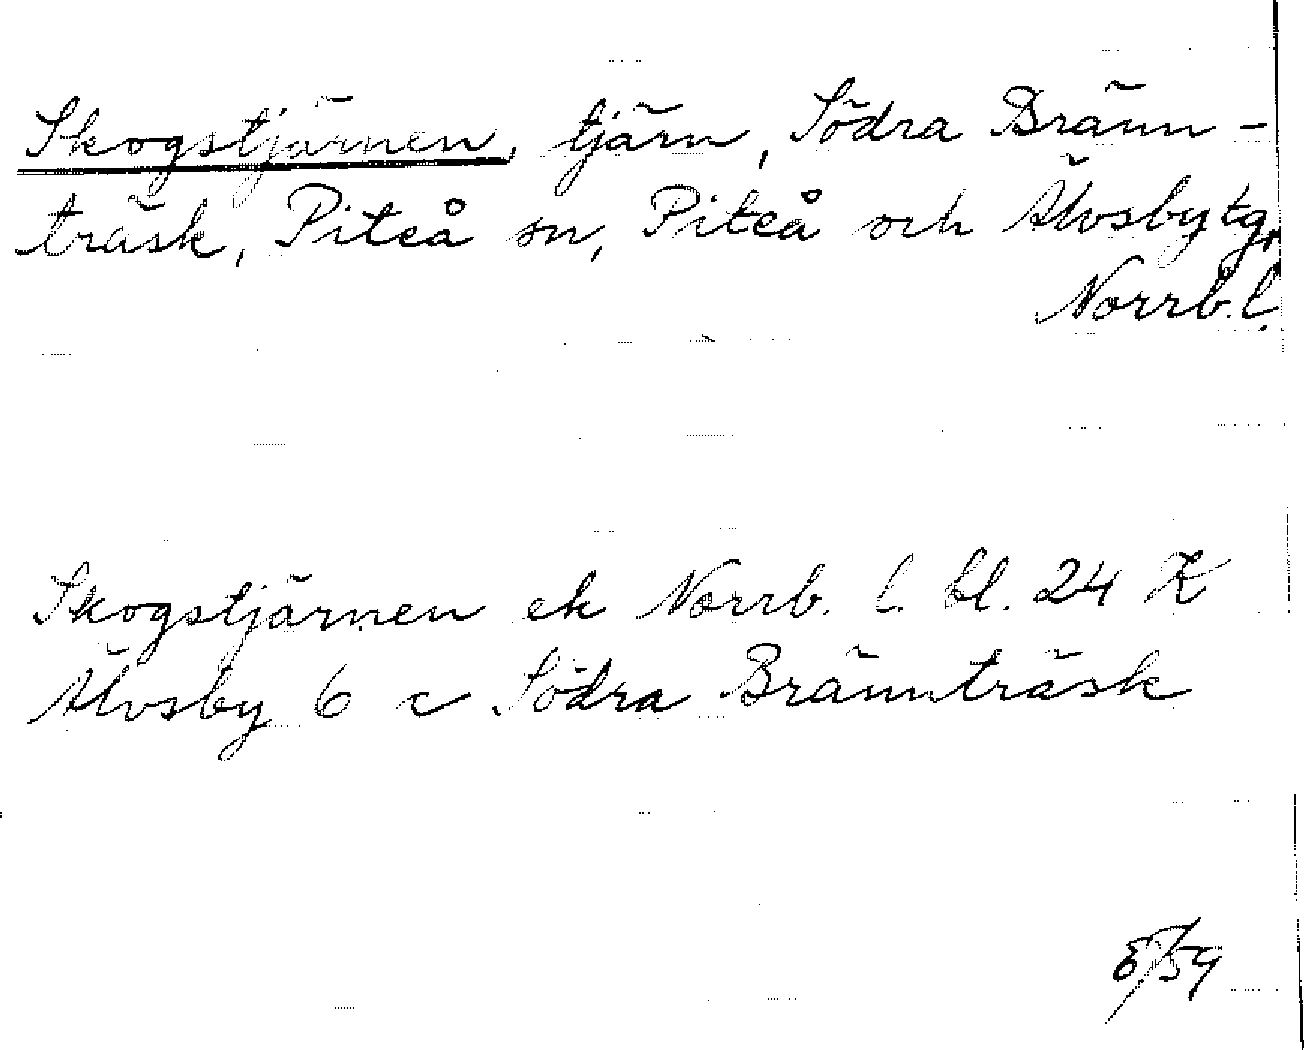 Skogstjärnen, tjärn, Södra Bränn-
träsk, Piteå sn, Piteå och Älvsby tg,
Norrb. l.
Skogstjärnen ek Norrb. l. bl. 24 K
Älvsby 6 c Södra Brännträsk